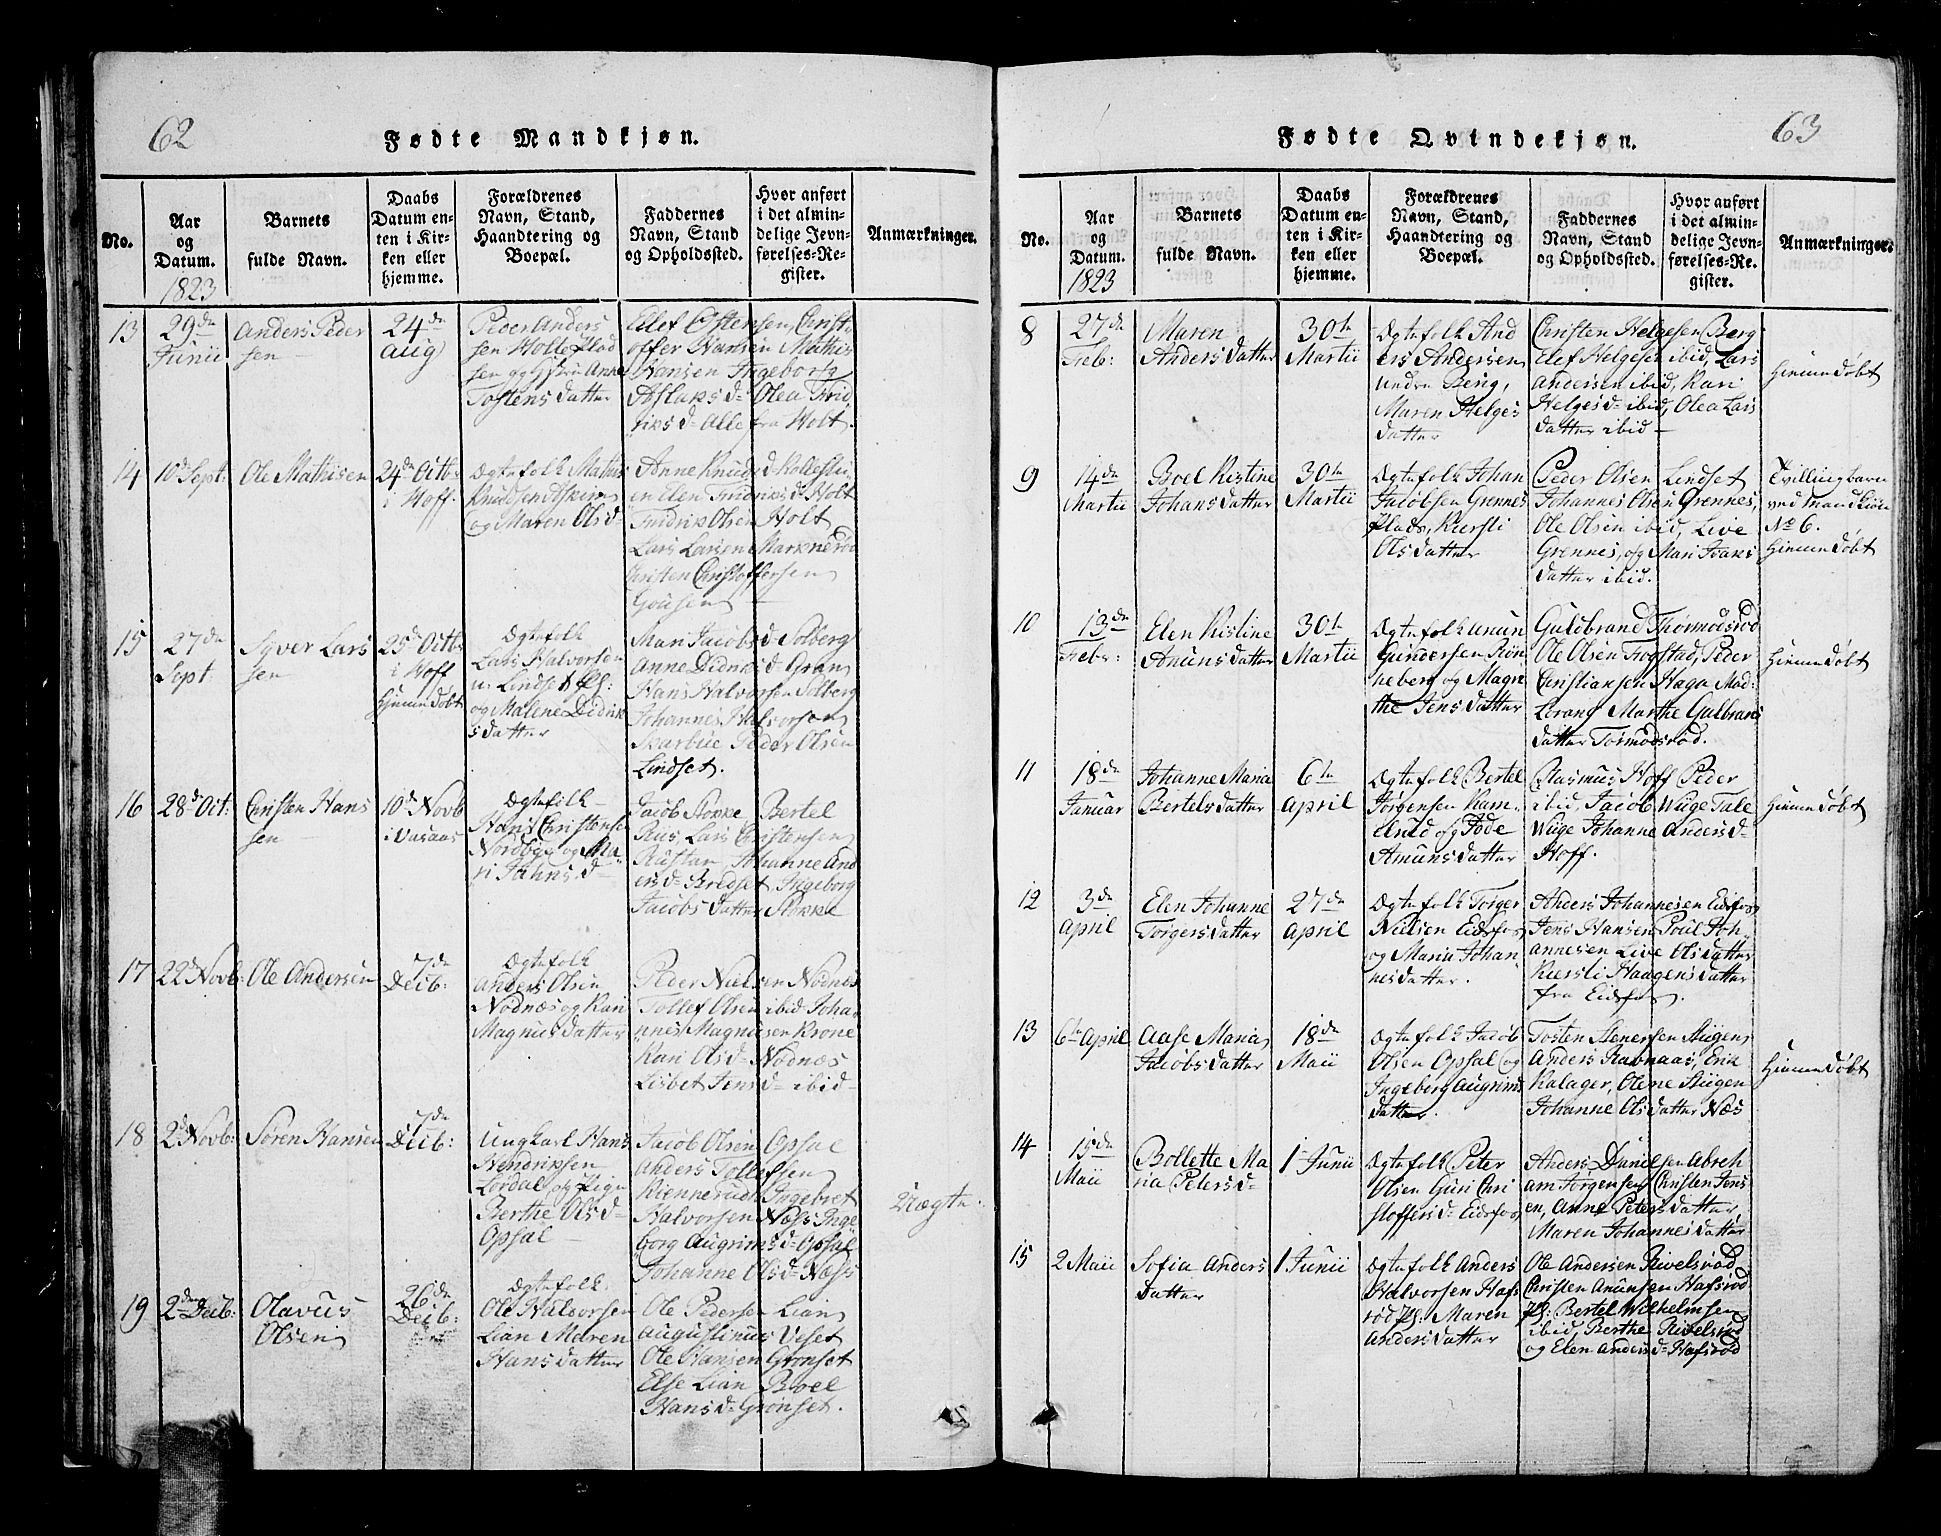 62
Fødte Mandkjøn.
No.
Aar
og
Datum.
1823
Barnets
fulde Navn.
Daabs
Datum en-
ten i Kir-
ken eller
hjemme.
Forældrenes
Navn, Stand,
Haandtering og
Boepæl.
Faddernes
Navn, Stand
og Opholdssted.
Hvor anført
i det almin-
delige Jevn-
førelses-Re-
gister.
Anmærkninger.
13
29de
Junii
Anders Peder
sen
24de
Aug
Peder Anders
sen Holteplad
sen og Hustru Anne
Tostensdatter
Ellef Ostensen, Christ
offer Hansen Mathis
Hansen Ingeborg
Aslaksd= Olea Frid
riksd= Alle fra Holt.
14
10d Sept:
Ole Mathisen
24de Octb
i Hoff.
Ægtefolk Mathis
Knudsen
og Maren Olsd=
Anne Knudsd
en Elen Fridriksd= Holt
Fridrik Olsen Holt
Lars Larsen Marknerød
Christen Christoffersen
15
27de
Sept:
Syver Lars
sen
25d Octb
i Hoff
Hiemmedøbt
Ægtefolk
Lars Halvorsen
u: Lindset Eh:
og Malene Didrik
sdatter
Mari Jacobsd= Solberg
Anne Didriksd= Gran
Hans Halvorsen Solberg
Johannes Halvorsen
Skarbue Peder Olsen
Lindset.
16
28d Oct:
Christen Hans
sen
10d Novb
i Vasaas
Ægtefolk
Hans Christensen
Nordbye og Ma-
ri Jahnsd=
Jacob Stokke, Bertel
Rus, Lars Christensen
Rustan, Johanne And
ersd= Bredset, Ingeborg
Jacobsdatter Stokke
17
22d Novb:
Ole Andersen
7de
Decb:
Ægtefolk
Anders Olsen
Nodnæs og Kari
Magnusdatter
Peder Nielsen Nodnæs
Tollef Olsen ibid Joha
nnes Magnusen Krone
Kari Olsd= Nodnæs
Lisbet Jensd= ibid=
18
2d Novb:
Søren Hansen
7de
Decb:
Ungkarl Hans
Hendriksen
Lerdal og Pige
Berthe Olsd=
Opsal
Jacob Olsen Opsal
Anders Tollefsen
Kiennerud Ingebret
Halvorsen Næss Inge
borg Augrimsd= Opsal
Johanne Olsd= Næss
Uægte:
19
2den Decb:
Olavus
Olsen
26de
Decb:
Ægtefolk
Ole Halvorsen
Lian Maren
Hansdatter
Ole Pedersen Lian
Augustinus Veset
Ole Hansen Grønset
Else Lian Boel
Hansd= Grønset.
63
Fødte Qvindekjøn.
No.
Aar
og
Datum.
1823
Barnets
fulde Navn.
Daabs
Datum en-
ten i Kir-
ken eller
hjemme.
Forældrenes
Navn, Stand,
Haandtering og
Boepæl.
Faddernes
Navn, Stand
og Opholdssted.
Hvor anført
i det almin-
delige Jevn-
førelses-Re-
gister.
Anmærkninger.
8
27de
Febr:
Maren
Andersdatter
30te
Martii
Ægtefolk And
ers Andersen
undre Berg,
Maren Helges
datter
Christen Helgesen Berg
Elef Helgesen ibid, Lars
Andersen ibid, Kari
Helgesd= ibid, Olea Lars
datter ibid=
Hiemmedøbt
9
14de
Martii
Boel Kistine
Johansdatter
30te
Martii
Ægtefolk Johan
Jacobsen Grennes
plads, Kiersti
Olsdatter
Peder Olsen Lindset
Johannes Olsen Grennes,
Ole Olsen ibid, Live
Grennes, og Mari Ivars
datter ibid.
Tvillingbarn
ved Mandkiøn
No 6.
Hiemmedøbt
10
13de
Febr:
Elen Kistine
Amunsdatter
30te
Martii
Ægtefolk Amun
Gundersen Røn
neberg og Magre
the Jensdatter
Guldbrand Thormodsrød
Ole Olsen Frogstad, Peder
Christiansen Haga Mad:
Lerang Marthe Gulbrans
datter Tormodsrød.
Hiemmedøbt
11
18de
Januar
Johanne Maria
Bertelsdatter
6te
April
Ægtefolk Bertel
Jørgensen Ram-
og Tode
Amunsdatter
Rasmus Hoff Peder
ibid, Jacob Wiige Tale
Wiige Johanne Andersd=
Hoff.
Hiemmedøbt
12
3de
April
Elen Johanne
Torgersdatter
27de
April
Ægtefolk Torger
Nielsen Eidsfos
og Marie Johan
nesdatter.
Anders Johannesen Eidsfos
Jens Hansen Poul Joh-
annesen Live Olsdatter
Kiersti Haagensdatter
fra Eidsfos.
13
6te April
Aase Maria
Jacobsdatter
18de
Maii
Ægtefolk Jacob
Olsen Opsal og
Ingeborg Augrims
datter.
Tosten Stenersen Stiigen
Anders Ravnaas, Erik
Kalager, Olene Stiigen
Johanne Olsdatter Næs
Hiemmedøbt
14
15de
Maii
Bollette Ma
ria Petersd=
1 Junii
Ægtefolk Peter
Olsen Guri Chri
stoffersd= Eidsfos
Anders Danielsen Abreh
am Jørgensen Christen Jens
en, Anne Petersdatter
Maren Johannesdatter
15
2 Maii
Sofia Anders
datter
1 Junii
Ægtefolk Anders
Halvorsen Hafs
rød Pl: Maren
Andersdatter
Ole Andersen Kivelsrød
Christen Amunsen Hafsrød
Pl: Bertel Wilhelmsen
ibid, Berthe Kivelsrød
og Elen Andersd= Hafsrød